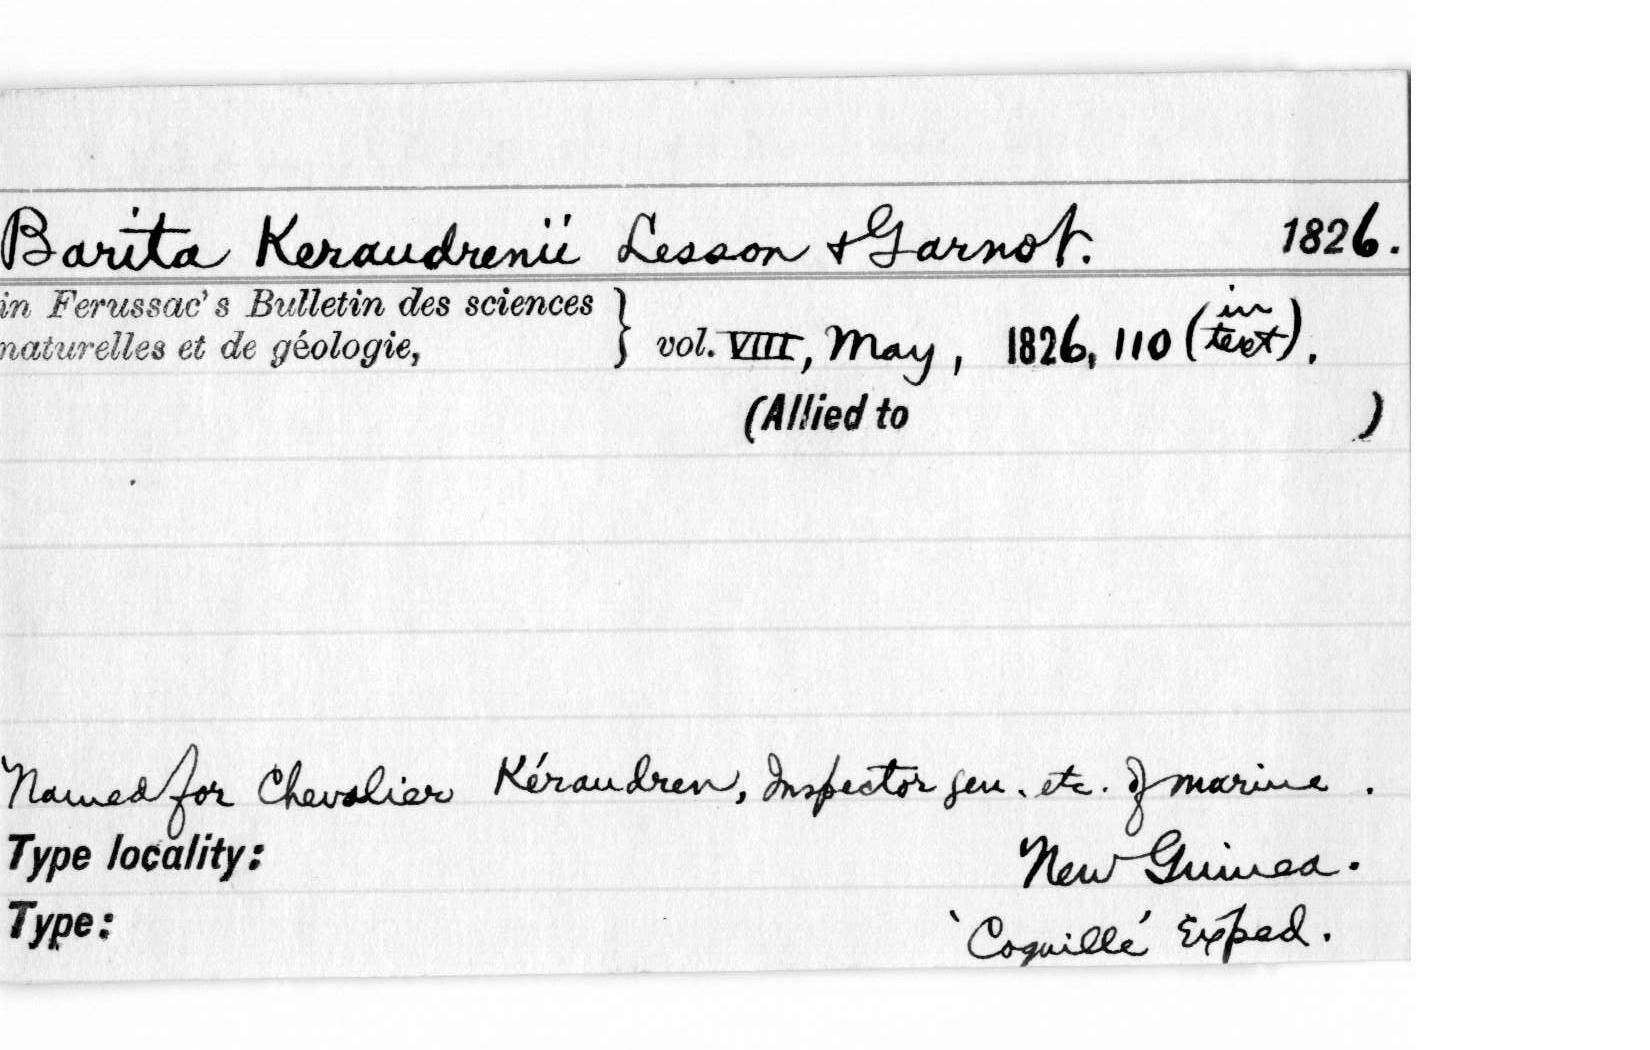 Barita Keraudrenii Lesson & Garnot. 1826.
in Ferussac's Bulletin des sciences
naturelles et de géologie, } vol. VIII, May, 1826, 110 (in text).
(Allied to )
Named for Chevalier Kéraudren, Inspector gen. etc. of marine.
Type locality: New Guinea.
Type: 'Coquille' Exped.